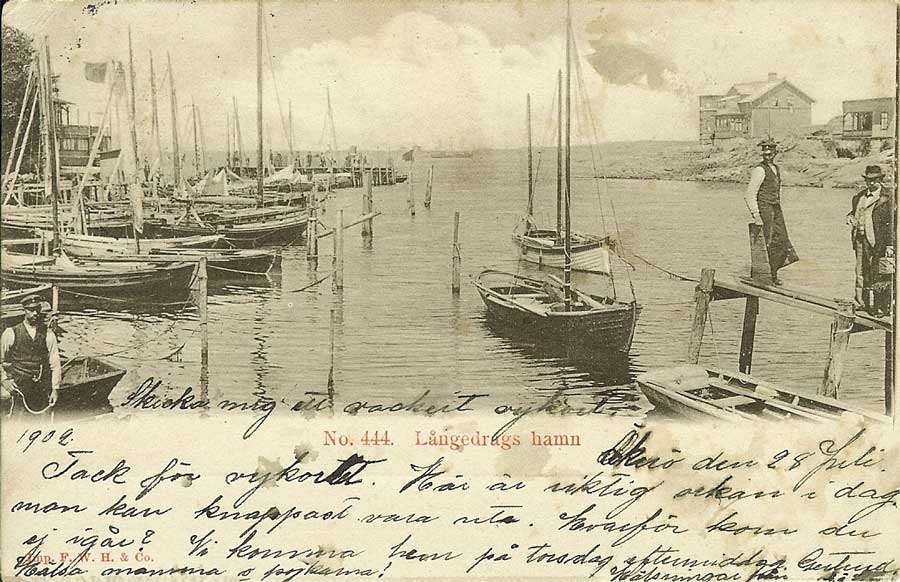 Skicka mig ett vackert vykort.
No. 444. Långedrags hamn
1902.
den 28 Juli.
Tack för vykortet. Här är riktig orkan i dag
man kan knappast vara ute. Hvarför kom du
ej igår? Vi komma hem på torsdag eftermiddag. Gertrud.
Imp. F. W. H. & Co.
Hälsa mamma o pojkarna! Hälsningar från